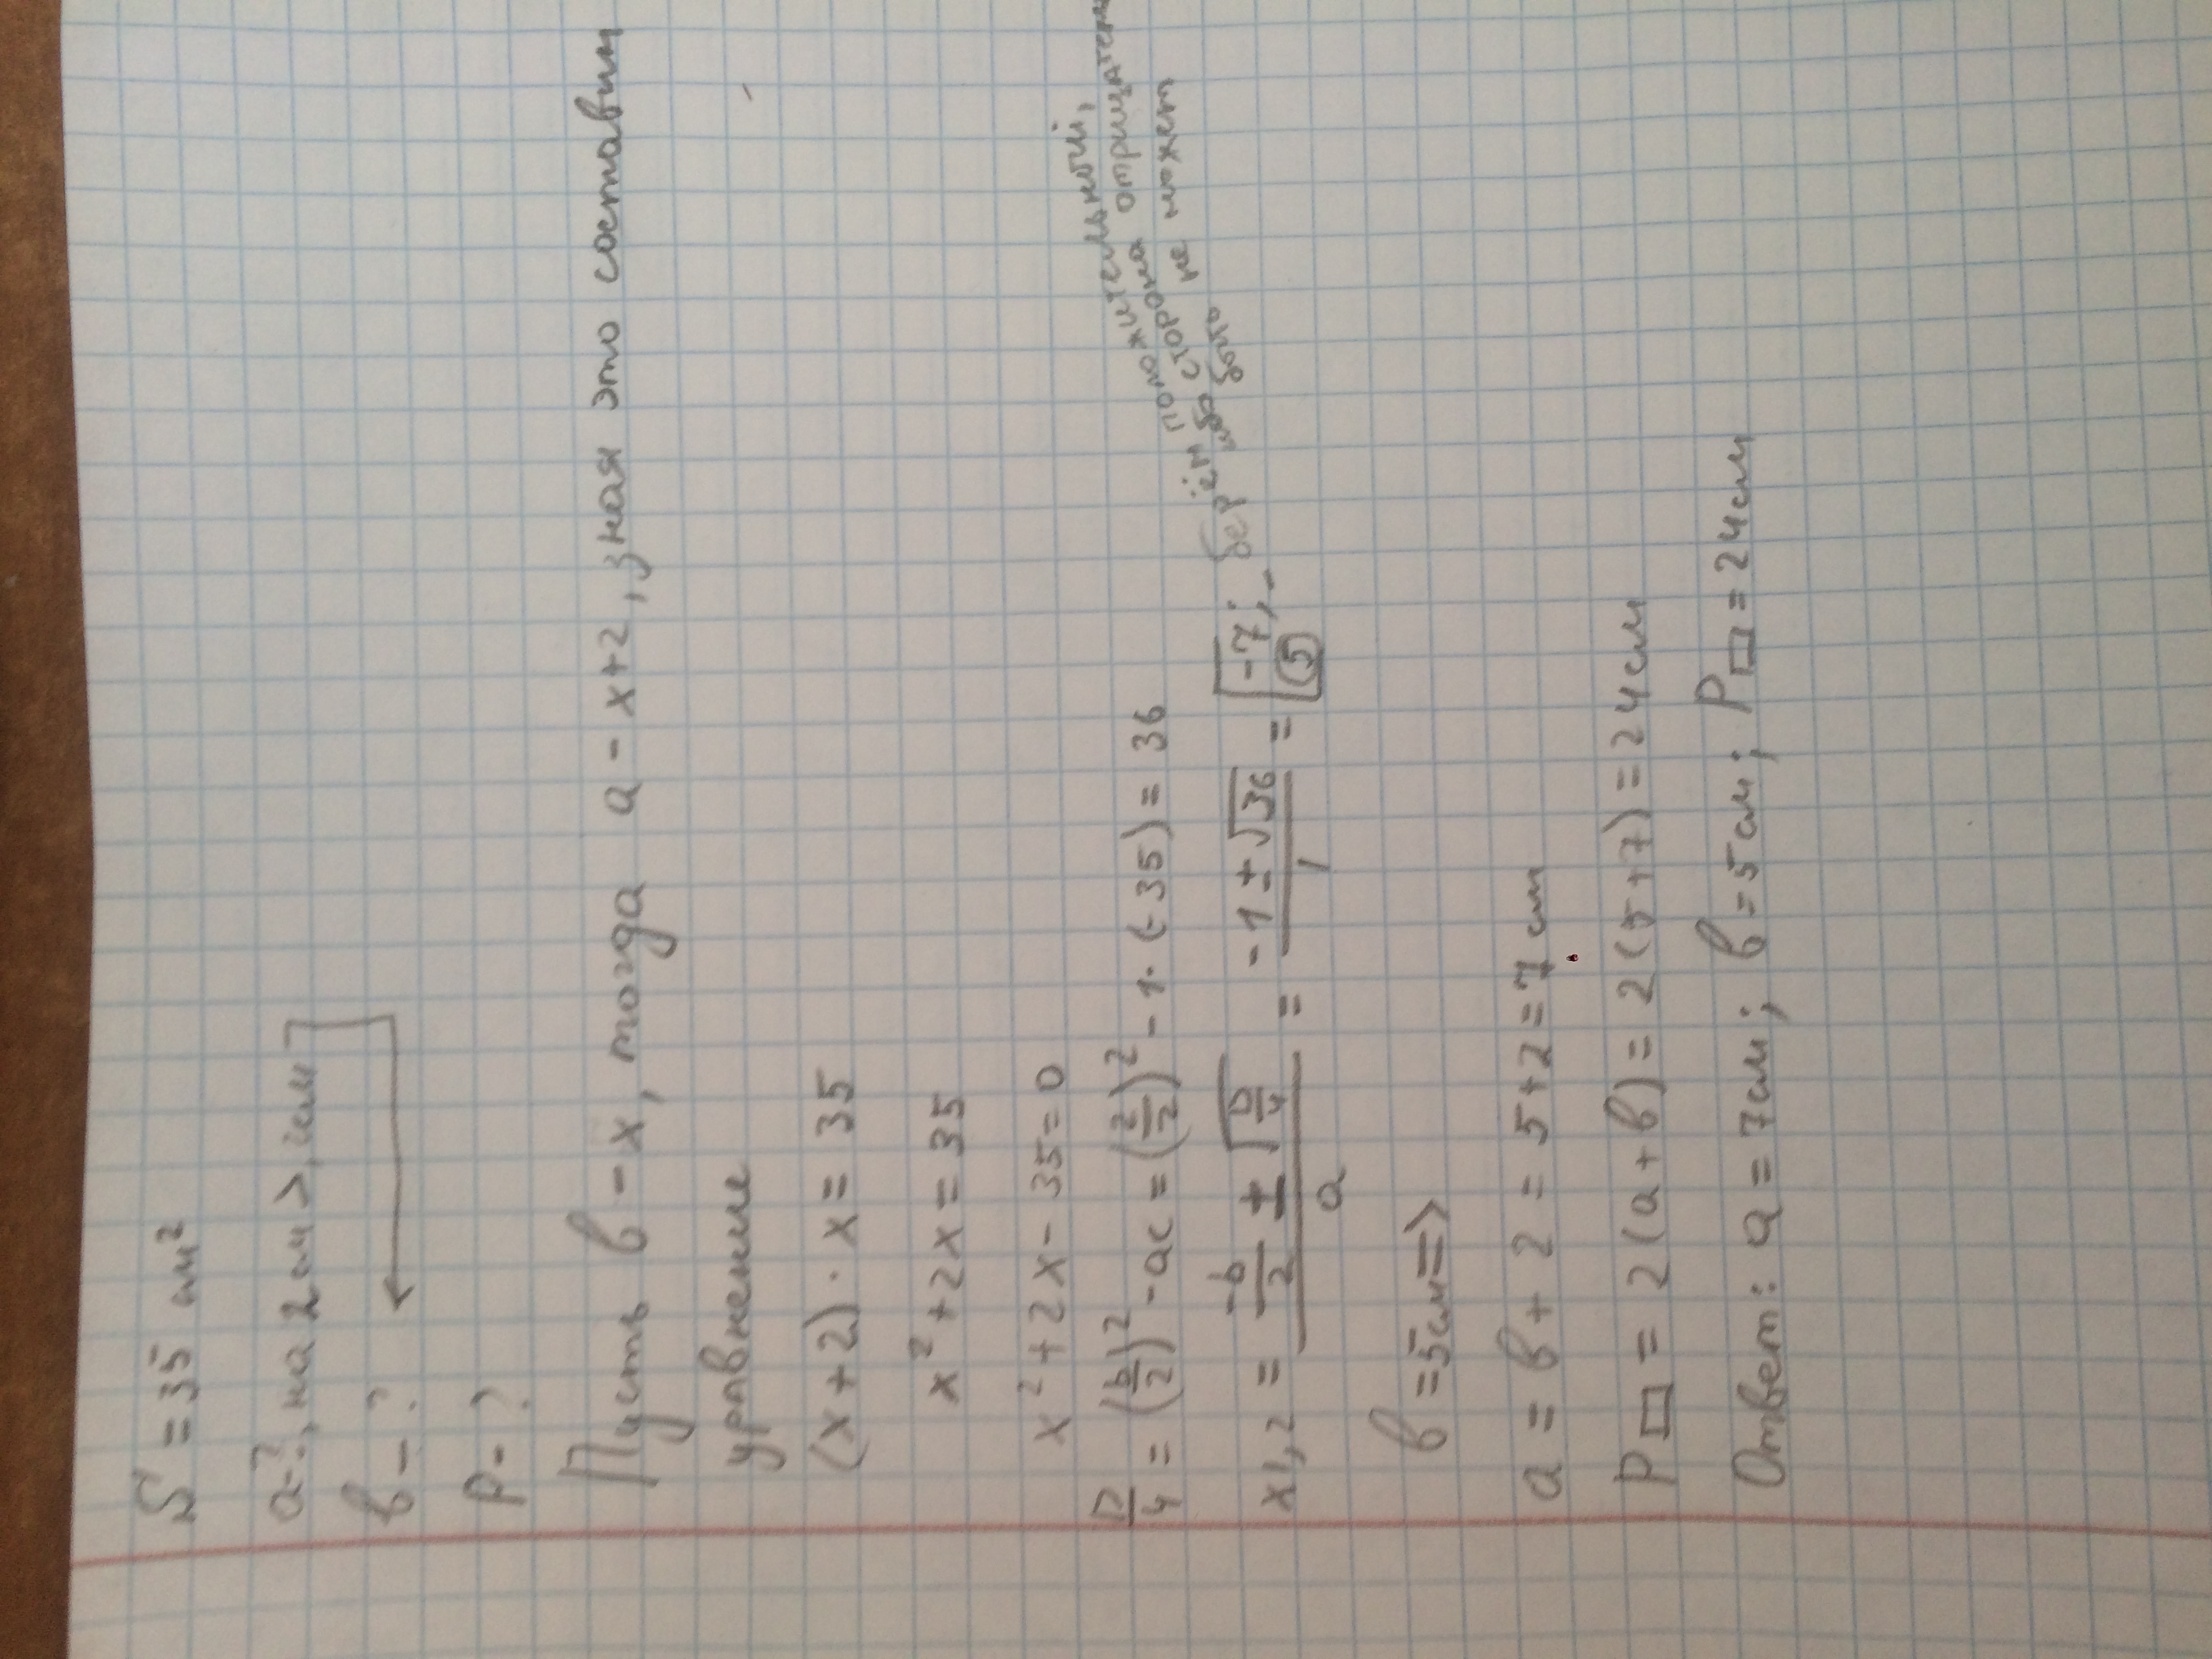 S = 35 см²
a - ?, на 2 см >, чем
b - ?
P - ?
Пусть b - x, тогда a - x+2, зная это составим
уравнение
(x+2) · x = 35
x² + 2x = 35
x² + 2x - 35 = 0
D/4 = (b/2)² - ac = (2/2)² - 1 · (-35) = 36
x1,2 = (-b/2 ± √(D/4))/a = (-1 ± √36)/1 = [-7; 5
берём положительный,
ибо сторона отрицательн
быть не может
b = 5см =>
a = b + 2 = 5+2 = 7 см
P▭ = 2(a+b) = 2(5+7) = 24см
Ответ: a = 7см; b = 5см; P▭ = 24см